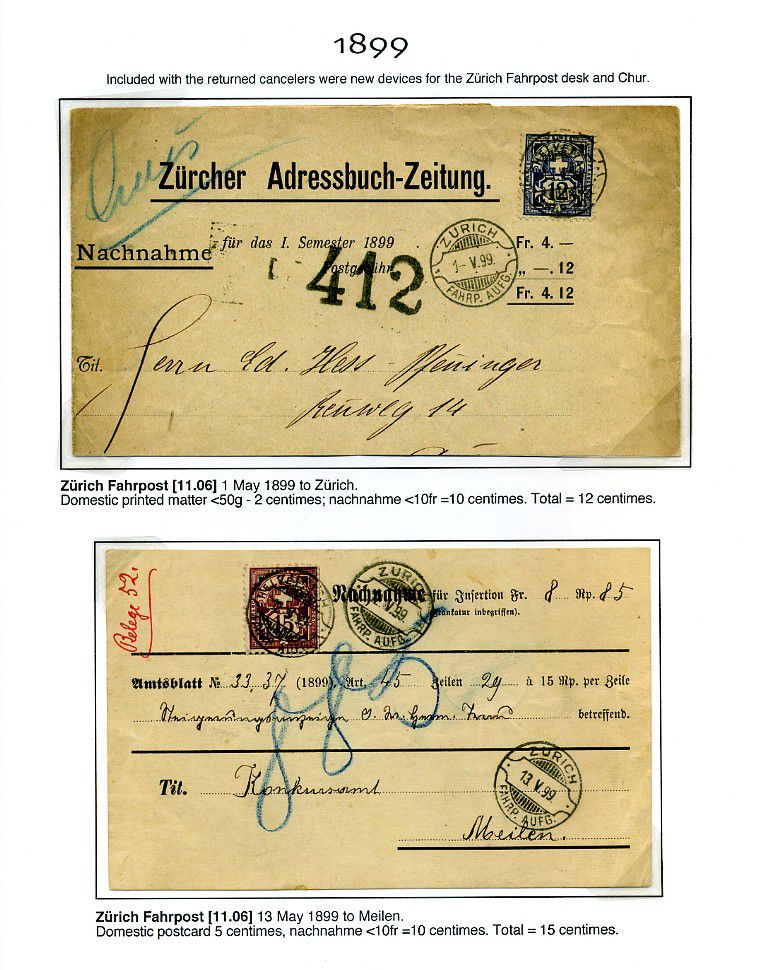 1899
Included with the returned cancelers were new devices for the Zürich Fahrpost desk and Chur.
Zürcher Adressbuch-Zeitung.
HELVETIA
12
Nachnahme für das I. Semester 1899 Fr. 4. —
Postgebühr „ —. 12
Fr. 4. 12
412
ZÜRICH
1-V.99.
FAHRP. AUFG.
Tit. Herrn Ed. Hess-Pfenninger
14
Zürich Fahrpost [11.06] 1 May 1899 to Zürich.
Domestic printed matter <50g - 2 centimes; nachnahme <10fr =10 centimes. Total = 12 centimes.
Belege 52.
HELVETIA
15
ZÜRICH
V.99
FAHRP. AUFG.
Nachnahme für Insertion Fr. 8 Rp. 85
(Frankatur inbegriffen).
885
Amtsblatt № 33.37 (1899), Art. 45 Zeilen 29 à 15 Rp. per Zeile
Steigerungsanzeige betreffend.
Tit. Konkursamt
ZÜRICH
13 V.99
FAHRP. AUFG.
Meilen.
Zürich Fahrpost [11.06] 13 May 1899 to Meilen.
Domestic postcard 5 centimes, nachnahme <10fr =10 centimes. Total = 15 centimes.